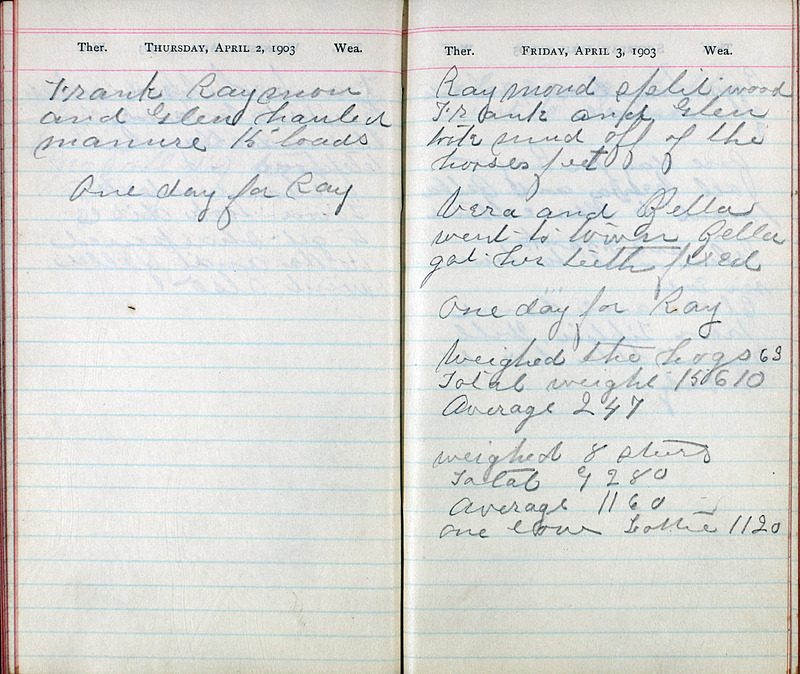 Ther. THURSDAY, APRIL 2, 1903 Wea.
Frank Raymon
and Glen hauled
manure 15 loads
One day for Ray
Ther. FRIDAY, APRIL 3, 1903 Wea.
Raymond split wood
Frank and Glen
mud off of the
horses feet
Vera and Bella
went to town Bella
got her teeth fixed
One day for Ray
Weighed the hogs 63
Total weight 15610
Average 247
weighed 8 steers
Total 9280
Average 1160
one cow Lottie 1120